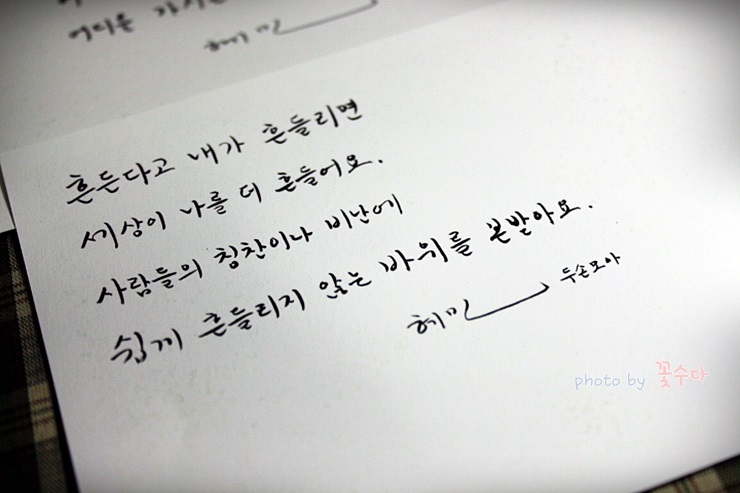 어디운
혜민
흔든다고 내가 흔들리면
세상이 나를 더 흔들어요.
사람들의 칭찬이나 비난에
쉽게 흔들리지 않는 바위를 본받아요.
혜민 두손모아
photo by 꽃수다